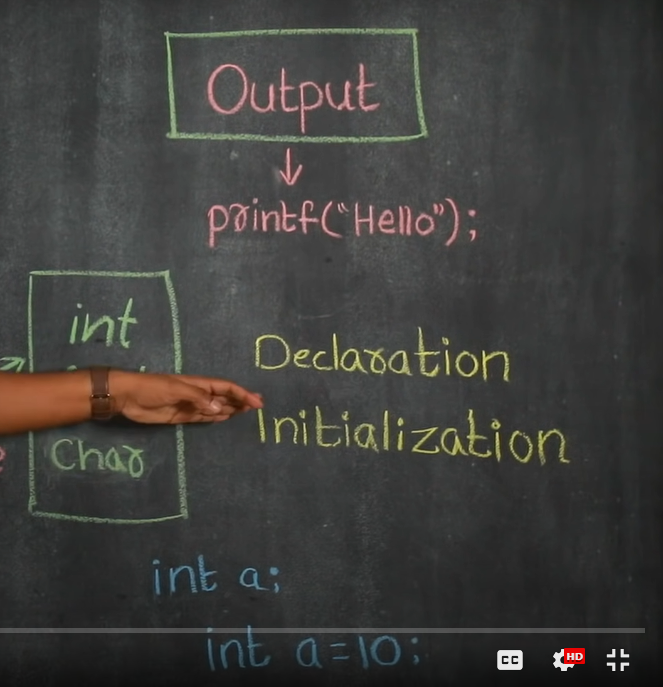 Output
printf("Hello");
int
Char
Declaration
Initialization
int a;
int a=10;
CC
HD